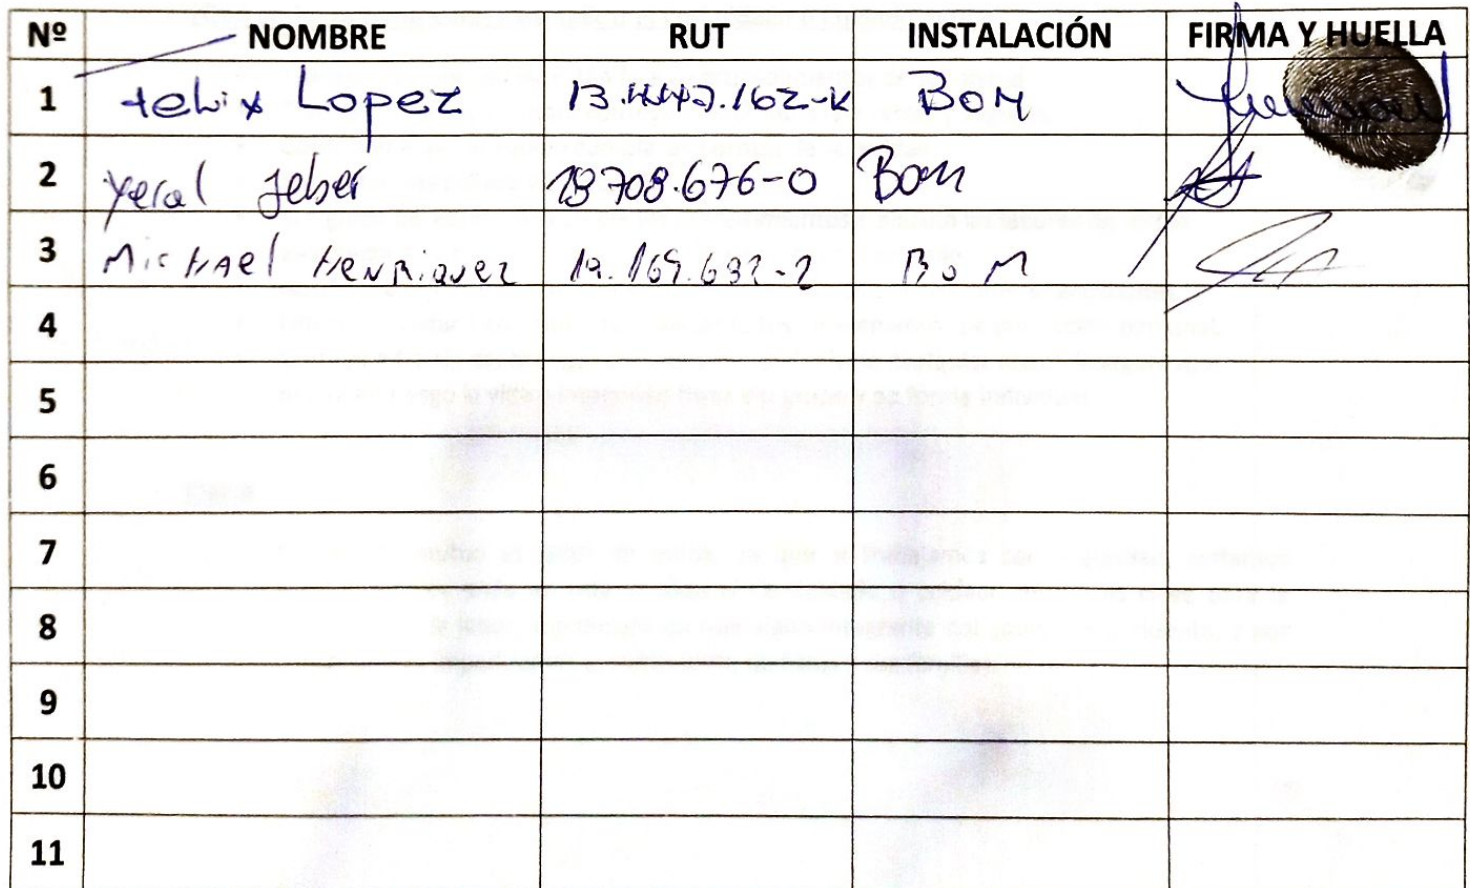 Nº NOMBRE RUT INSTALACIÓN FIRMA Y HUELLA
1 Felix Lopez BOM
2 Yeral Jeber 18708.676-0 BOM
3 Michael Henriquez 19.169.632-2 BOM
4
5
6
7
8
9
10
11